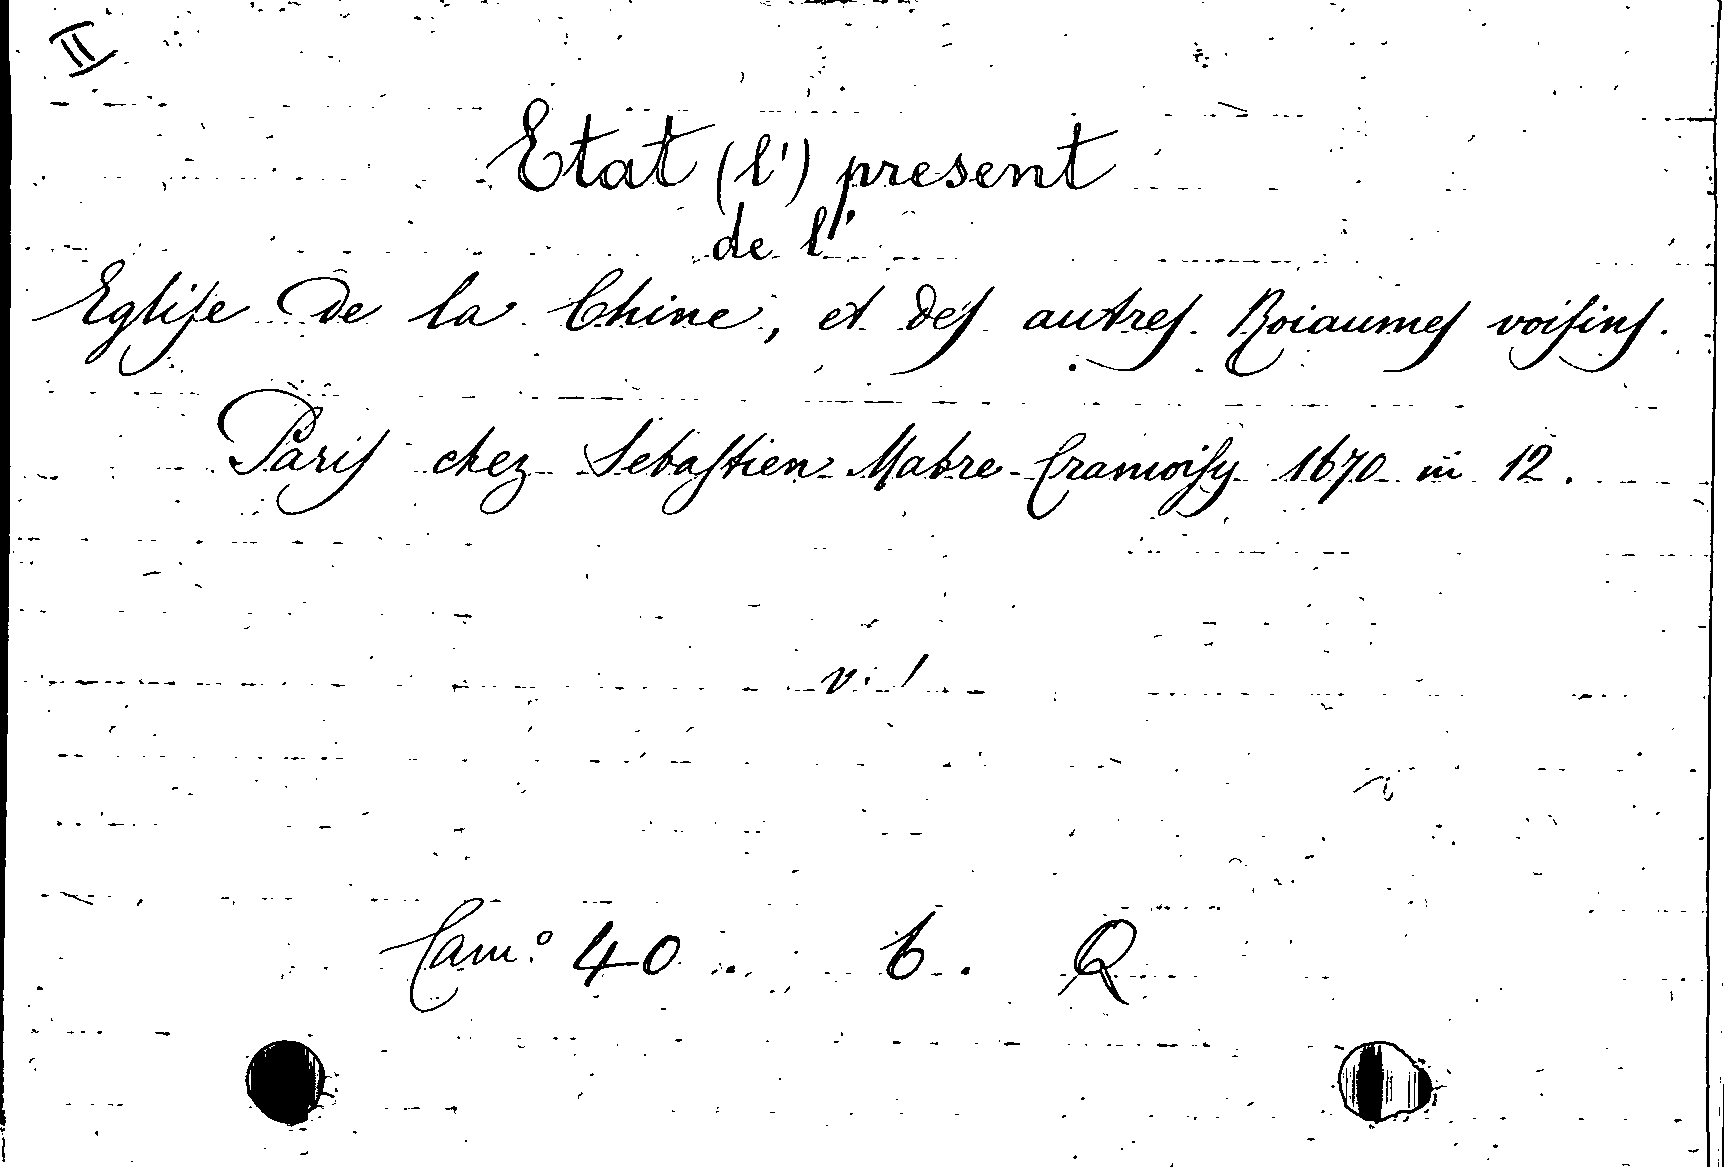 II
Etat (l') present
de l'
Egliſe de la Chine, et des autres Roiaumes voiſins.
Paris chez Sebaſtien Mabre-Cramoiſy 1670 in 12.
v. 1
Cam.º 40. 6. Q